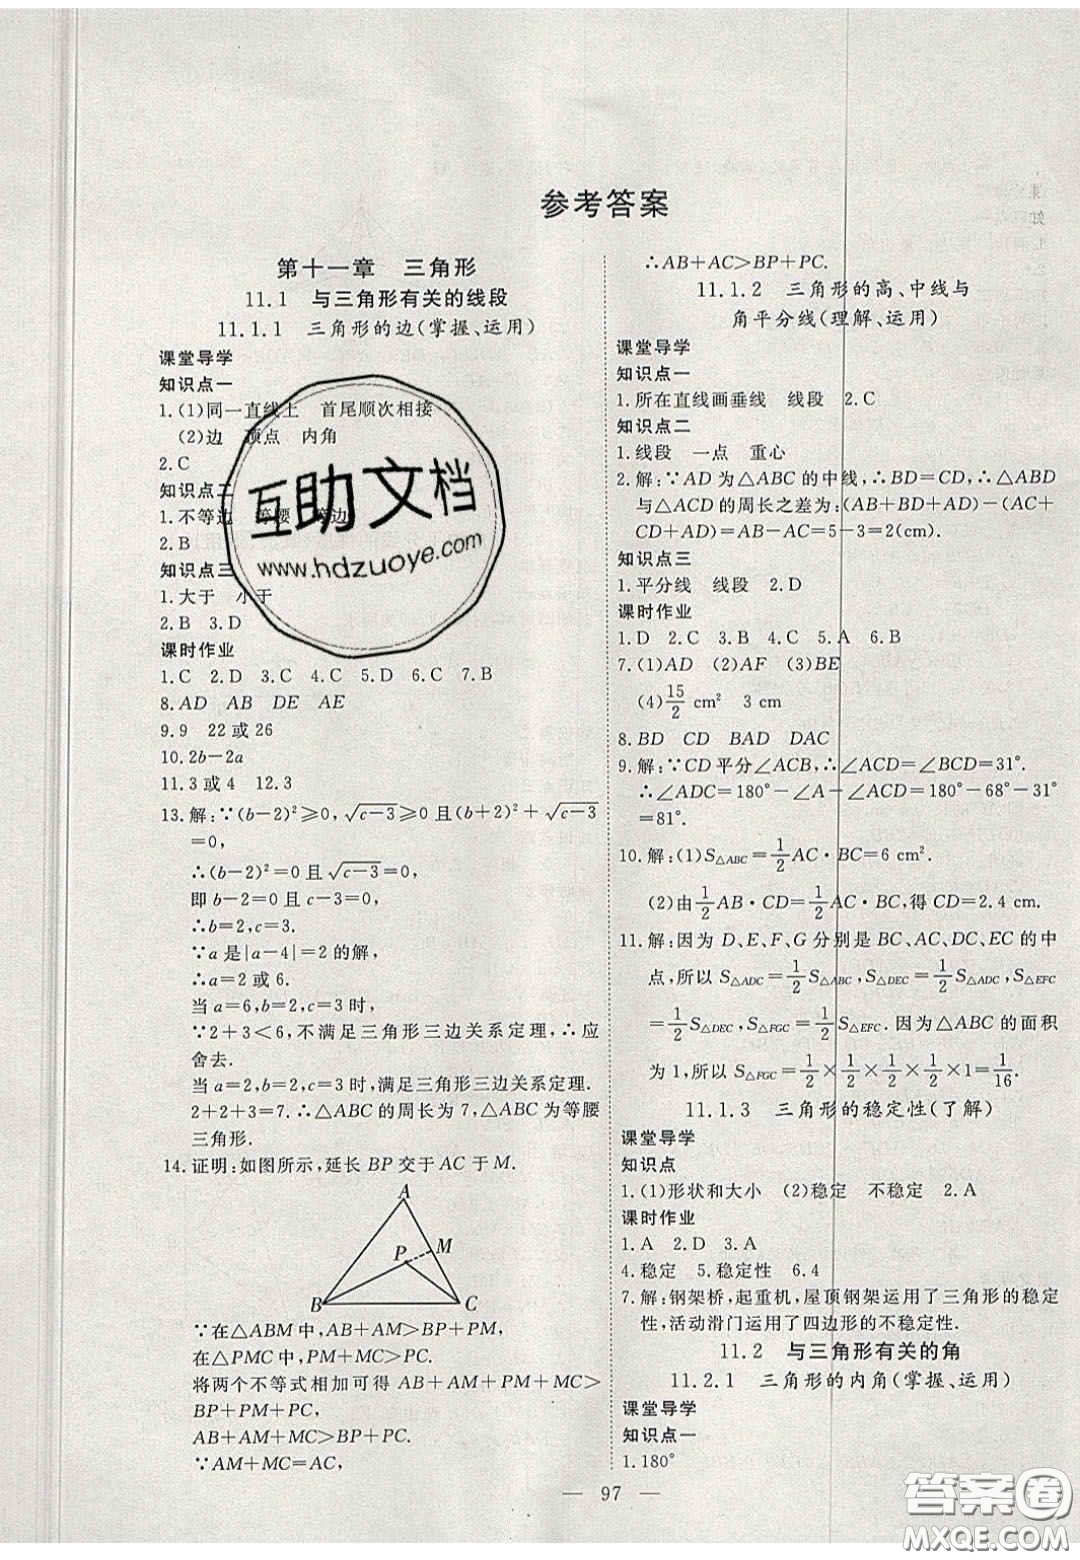 参考答案
第十一章　三角形
11.1　与三角形有关的线段
11.1.1　三角形的边(掌握、运用)
课堂导学
知识点一
1.(1)同一直线上　首尾顺次相接
(2)边　顶点　内角
2.C
知识点二
1.不等边　等腰　等边
2.B
知识点三
1.大于　小于
2.B　3.D
课时作业
1.C　2.D　3.C　4.C　5.D　6.C　7.B
8.AD　AB　DE　AE
9.9　22或26
10.2b－2a
11.3或4　12.3
13.解:∵(b－2)²≥0,√(c－3)≥0且(b＋2)²＋√(c－3)
＝0,
∴(b－2)²＝0且√(c－3)＝0,
即b－2＝0且c－3＝0,
∴b＝2,c＝3.
∵a是|a－4|＝2的解,
∴a＝2或6.
当a＝6,b＝2,c＝3时,
∵2＋3＜6,不满足三角形三边关系定理,∴应
舍去.
当a＝2,b＝2,c＝3时,满足三角形三边关系定理.
2＋2＋3＝7.∴△ABC的周长为7,△ABC为等腰
三角形.
14.证明:如图所示,延长BP交于AC于M.
A
P
M
B
C
∵在△ABM中,AB＋AM>BP＋PM,
在△PMC中,PM＋MC>PC.
将两个不等式相加可得AB＋AM＋PM＋MC>
BP＋PM＋PC,
AB＋AM＋MC>BP＋PC.
∵AM＋MC＝AC,
∴AB＋AC>BP＋PC.
11.1.2　三角形的高、中线与
角平分线(理解、运用)
课堂导学
知识点一
1.所在直线画垂线　线段　2.C
知识点二
1.线段　一点　重心
2.解:∵AD为△ABC的中线,∴BD＝CD,∴△ABD
与△ACD的周长之差为:(AB＋BD＋AD)－(AC＋
CD＋AD)＝AB－AC＝5－3＝2(cm).
知识点三
1.平分线　线段　2.D
课时作业
1.D　2.C　3.B　4.C　5.A　6.B
7.(1)AD　(2)AF　(3)BE
(4)15/2 cm²　3 cm
8.BD　CD　BAD　DAC
9.解:∵CD平分∠ACB,∴∠ACD＝∠BCD＝31°.
∴∠ADC＝180°－∠A－∠ACD＝180°－68°－31°
＝81°.
10.解:(1)S△ABC＝1/2AC·BC＝6 cm².
(2)由1/2AB·CD＝1/2AC·BC,得CD＝2.4 cm.
11.解:因为D、E、F、G分别是BC、AC、DC、EC的中
点,所以S△ADC＝1/2S△ABC,S△DEC＝1/2S△ADC,S△EFC
＝1/2S△DEC,S△FGC＝1/2S△EFC.因为△ABC的面积
为1,所以S△FGC＝1/2×1/2×1/2×1/2×1＝1/16.
11.1.3　三角形的稳定性(了解)
课堂导学
知识点
1.(1)形状和大小　(2)稳定　不稳定　2.A
课时作业
1.A　2.D　3.A
4.稳定　5.稳定性　6.4
7.解:钢架桥,起重机,屋顶钢架运用了三角形的稳定
性,活动滑门运用了四边形的不稳定性.
11.2　与三角形有关的角
11.2.1　三角形的内角(掌握、运用)
课堂导学
知识点一
1.180°
— 97 —
互助文档
www.hdzuoye.com
答案圈
MXQE.COM